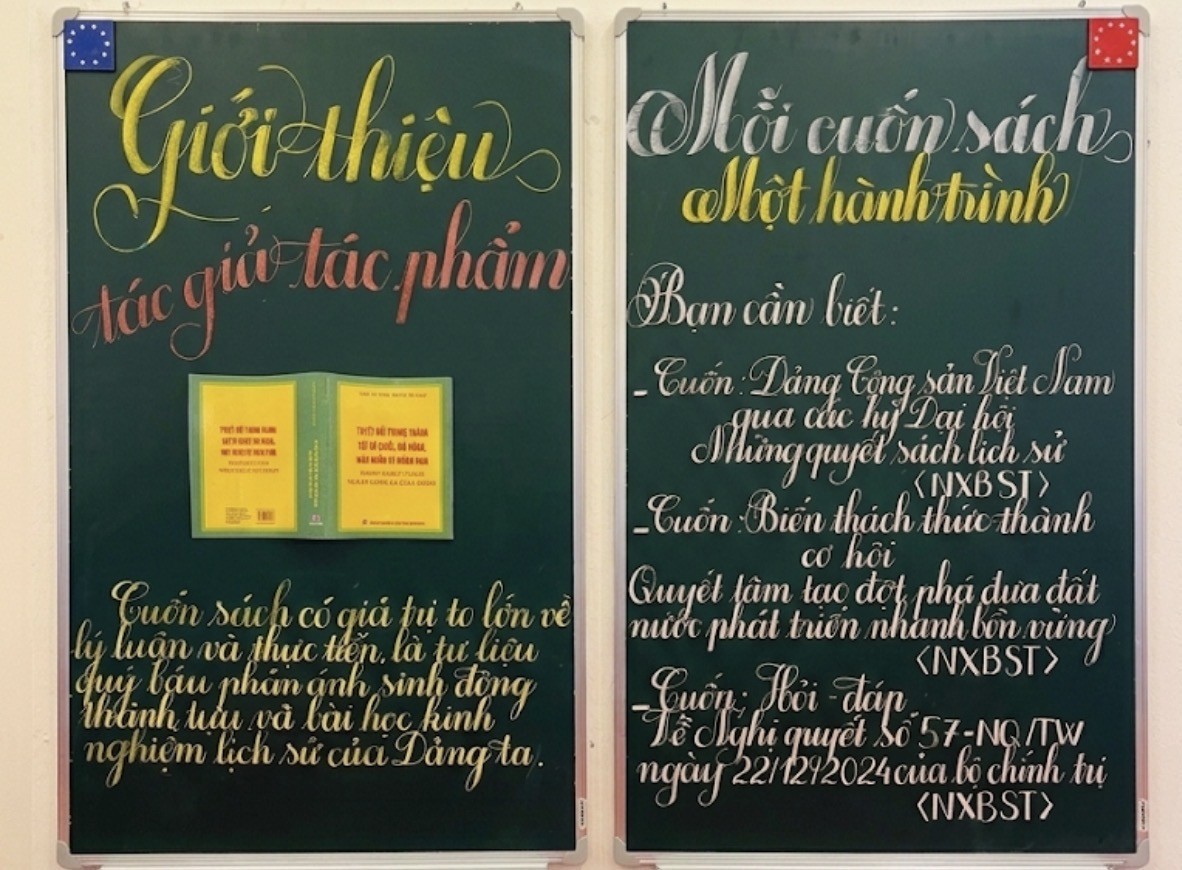 Giới thiệu
tác giả tác phẩm
Cuốn sách có giá trị to lớn về
lý luận và thực tiễn, là tư liệu
quý báu phản ánh sinh động
thành tựu và bài học kinh
nghiệm lịch sử của Đảng ta.
Mỗi cuốn sách
Một hành trình
Bạn cần biết:
- Cuốn: Đảng Cộng sản Việt Nam
qua các kỳ Đại hội
Những quyết sách lịch sử
<NXBST>
- Cuốn: Biến thách thức thành
cơ hội
Quyết tâm tạo đột phá đưa đất
nước phát triển nhanh bền vững
<NXBST>
- Cuốn: Hỏi - đáp
Về Nghị quyết số 57-NQ/TW
ngày 22/12/2024 của bộ chính trị
<NXBST>